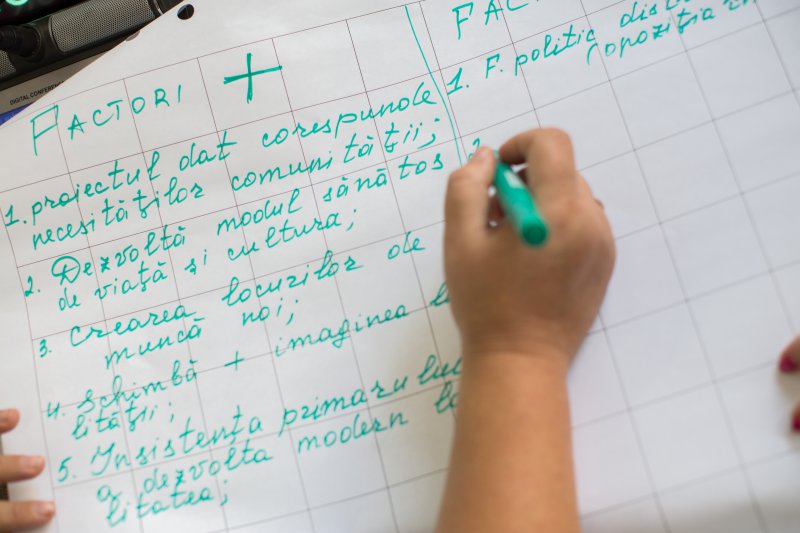 DIGITAL CONFERENCE
FACTORI +
1. proiectul dat corespunde
necesităților comunității;
2. Dezvoltă modul sănătos
de viață și cultura;
3. crearea locurilor de
muncă noi;
4. schimbă + imaginea
lității;
5. Insistența primarului
a dezvolta modern lo
litatea;
FAC
1. F. politic
(opoziția
2.